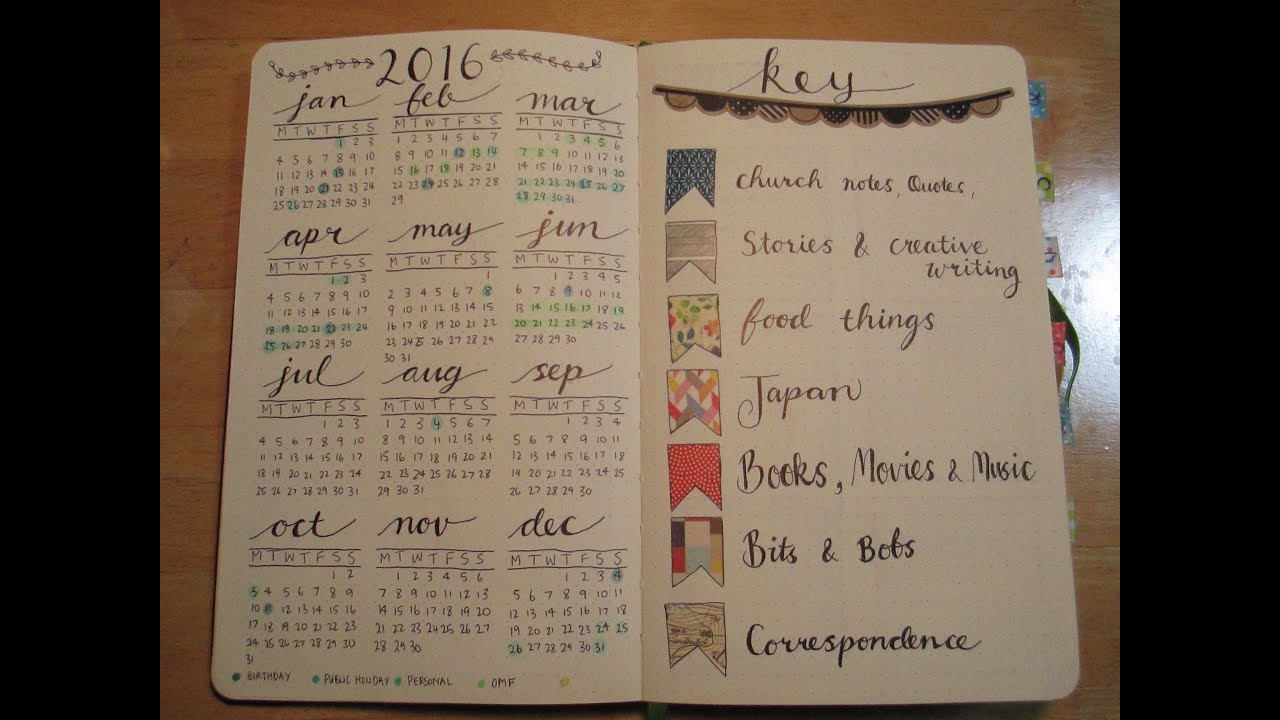 2016
jan
M T W T F S S
1 2 3
4 5 6 7 8 9 10
11 12 13 14 15 16 17
18 19 20 21 22 23 24
25 26 27 28 29 30 31
feb
M T W T F S S
1 2 3 4 5 6 7
8 9 10 11 12 13 14
15 16 17 18 19 20 21
22 23 24 25 26 27 28
29
mar
M T W T F S S
1 2 3 4 5 6
7 8 9 10 11 12 13
14 15 16 17 18 19 20
21 22 23 24 25 26 27
28 29 30 31
apr
M T W T F S S
1 2 3
4 5 6 7 8 9 10
11 12 13 14 15 16 17
18 19 20 21 22 23 24
25 26 27 28 29 30
may
M T W T F S S
1
2 3 4 5 6 7 8
9 10 11 12 13 14 15
16 17 18 19 20 21 22
23 24 25 26 27 28 29
30 31
jun
M T W T F S S
1 2 3 4 5
6 7 8 9 10 11 12
13 14 15 16 17 18 19
20 21 22 23 24 25 26
27 28 29 30
jul
M T W T F S S
1 2 3
4 5 6 7 8 9 10
11 12 13 14 15 16 17
18 19 20 21 22 23 24
25 26 27 28 29 30 31
aug
M T W T F S S
1 2 3 4 5 6 7
8 9 10 11 12 13 14
15 16 17 18 19 20 21
22 23 24 25 26 27 28
29 30 31
sep
M T W T F S S
1 2 3 4
5 6 7 8 9 10 11
12 13 14 15 16 17 18
19 20 21 22 23 24 25
26 27 28 29 30
oct
M T W T F S S
1 2
3 4 5 6 7 8 9
10 11 12 13 14 15 16
17 18 19 20 21 22 23
24 25 26 27 28 29 30
31
nov
M T W T F S S
1 2 3 4 5 6
7 8 9 10 11 12 13
14 15 16 17 18 19 20
21 22 23 24 25 26 27
28 29 30
dec
M T W T F S S
1 2 3 4
5 6 7 8 9 10 11
12 13 14 15 16 17 18
19 20 21 22 23 24 25
26 27 28 29 30 31
BIRTHDAY PUBLIC HOLIDAY PERSONAL OMF
key
church notes, Quotes,
Stories & creative
writing
food things
Japan
Books, Movies & Music
Bits & Bobs
Correspondence